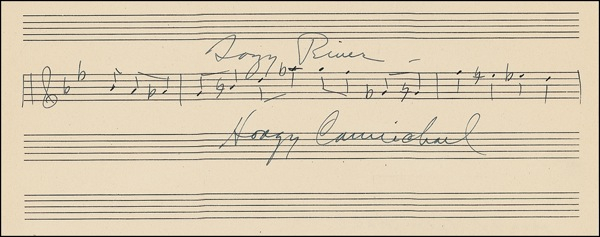 Lazy River -
Hoagy Carmichael